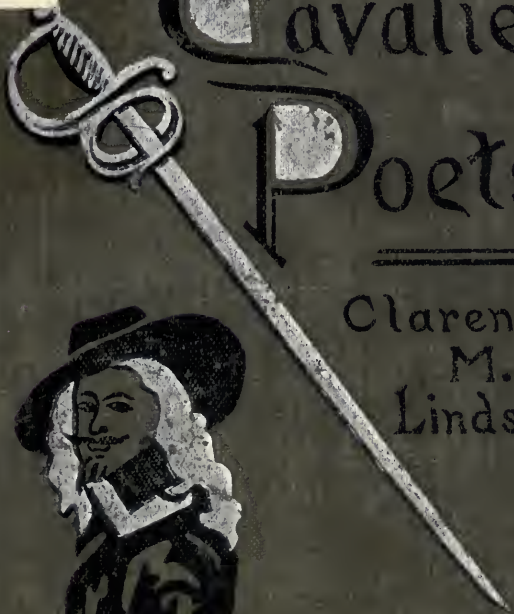 Cavalie
Poets
Claren
M.
Linds